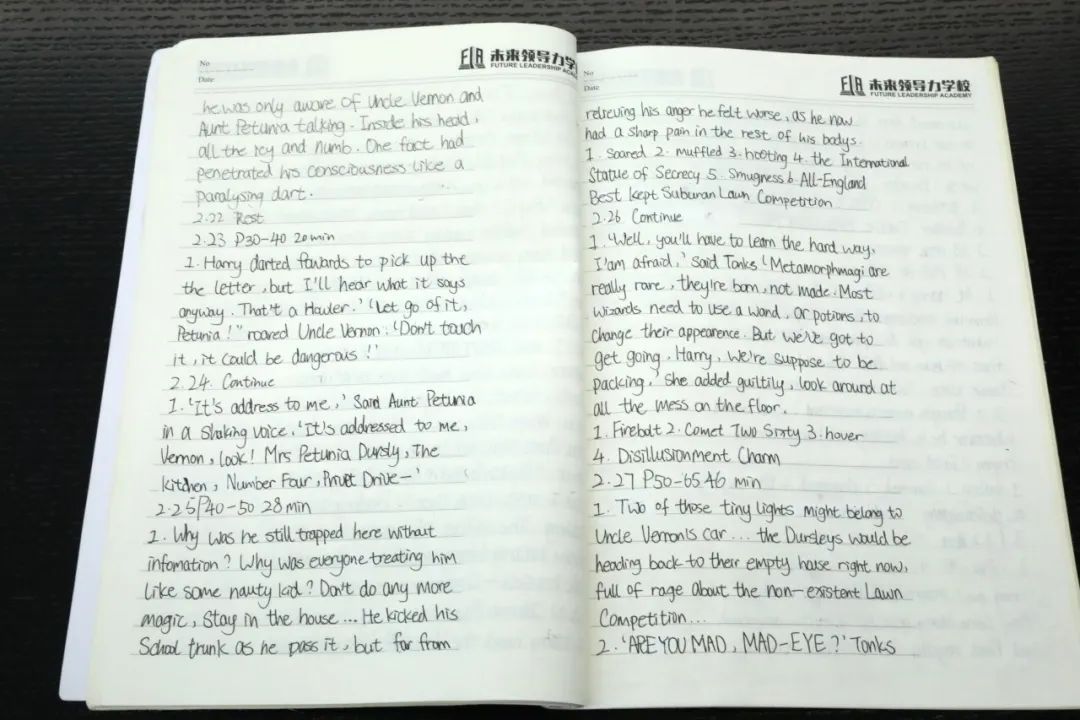 No
Date
FLA 未来领导力学
FUTURE LEADERSHIP ACADE
he was only aware of Uncle Vernon and
Aunt Petunia talking. Inside his head,
all the icy and numb. One fact had
penetrated his consciousness like a
paralysing dart.
2.22 Rest
2.23 P30-40 20min
1. Harry darted fowards to pick up the
the letter, but I'll hear what it says
anyway. That's a Howler.' 'Let go of it,
Petunia!" roared Uncle Vernon. 'Don't touch
it, it could be dangerous!'
2.24. Continue
1. 'It's address to me,' Said Aunt Petunia
in a shaking voice. 'It's addressed to me,
Vernon, look! Mrs Petunia Dursly, The
kitchen, Number Four, Privet Drive-'
2.25 P40-50 28min
1. Why was he still trapped here without
infomation? Why was everyone treating him
like some nauty kid? Don't do any more
magic, Stay in the house... He kicked his
School trunk as he pass it, but far from
No
Date
FLA 未来领导力学校
FUTURE LEADERSHIP ACADEMY
relieving his anger he felt worse, as he now
had a sharp pain in the rest of his bodys.
1. Soared 2. muffled 3. hooting 4. the International
Statue of Secrecy 5. Smugness 6. All-England
Best kept Suburan Lawn Competition
2.26 Continue
1. 'Well, you'll have to learn the hard way,
I'am afraid,' Said Tonks 'Metamorphmagi are
really rare, they're born, not made. Most
Wizards need to use a wand, or potions, to
change their appearance. But we've got to
get going, Harry, we're suppose to be
packing,' she added guiltily, look around at
all the mess on the floor.
1. Firebolt 2. Comet Two Sixty 3. hover
4. Disillusionment Charm
2.27 P50-65 46 min
1. Two of those tiny lights might belong to
Uncle Vernon's car... the Dursleys would be
heading back to their empty house right now,
full of rage about the non-existent Lawn
Competition...
2. 'ARE YOU MAD, MAD-EYE?' Tonks